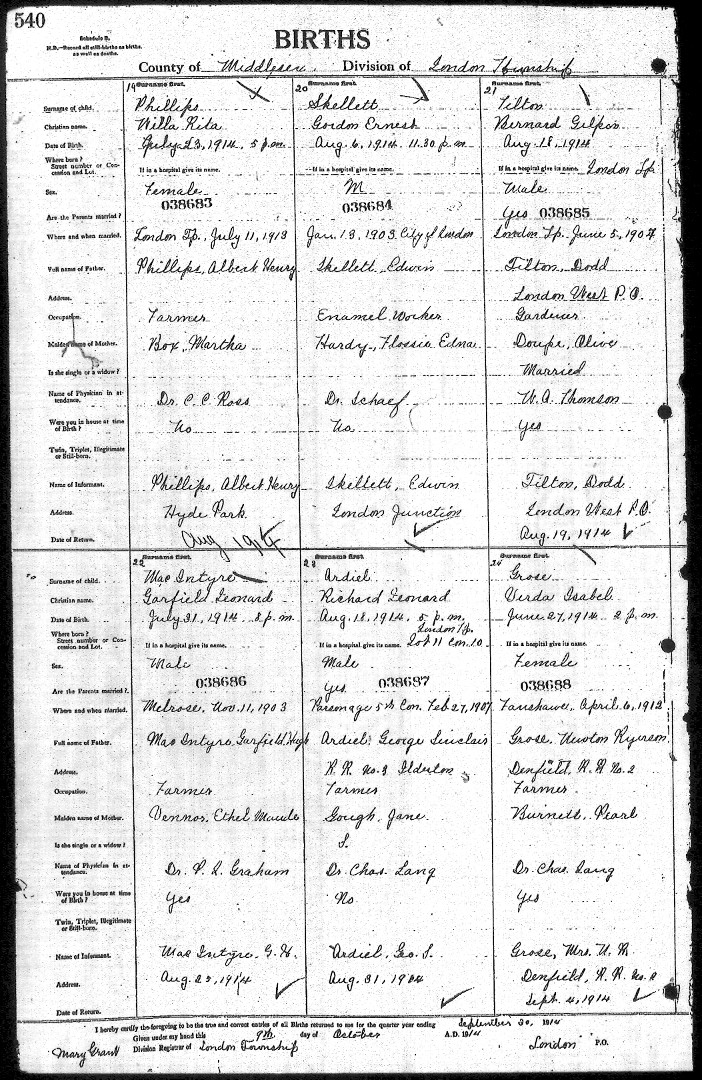 540
Schedule B.
N.B.—Record all still-births as births,
as well as deaths.
BIRTHS
County of Middlesex Division of London Township
19 Surname first. 20 Surname first. 21 Surname first.
Surname of child. Phillips Skellett Tilton
Christian name. Willa Rita Gordon Ernest Bernard Gilpin
Date of Birth. July 23, 1914, 5 p.m. Aug. 6, 1914. 11.30 p.m. Aug. 18, 1914
Where born?
Street number or Concession and Lot. If in a hospital give its name. If in a hospital give its name. If in a hospital give its name. London Tp.
Sex. Female M Male
038683 038684 038685
Are the Parents married? Yes
Where and when married. London Tp., July 11, 1913 Jan. 13, 1903. City of London London Tp. June 5, 1907
Full name of Father. Phillips, Albert Henry Skellett, Edwin Tilton, Dodd
Address. London West P.O.
Occupation. Farmer Enamel Worker Gardener
Maiden name of Mother. Box, Martha Hardy, Flossie Edna Doupe, Olive
Is she single or a widow? Married
Name of Physician in attendance. Dr. C. C. Ross Dr. Schaef W. A. Thomson
Were you in house at time of Birth? No No Yes
Twin, Triplet, Illegitimate or Still-born.
Name of Informant. Phillips, Albert Henry Skellett, Edwin Tilton, Dodd
Address. Hyde Park London Junction London West P.O.
Date of Return. Aug 1914 Aug. 19, 1914
22 Surname first. 23 Surname first. 24 Surname first.
Surname of child. MacIntyre Ardiel Grose
Christian name. Garfield Leonard Richard Leonard Verda Isabel
Date of Birth. July 31, 1914 8 p.m. Aug. 18, 1914, 5 p.m. June 27, 1914. 2 p.m.
Where born? London Tp.
Street number or Concession and Lot. If in a hospital give its name. If in a hospital give its name. Lot 11 Con. 10 If in a hospital give its name.
Sex. Male Male Female
038686 038687 038688
Are the Parents married? Yes
Where and when married. Melrose, Nov. 11, 1903 Parsonage 5th Con. Feb 27, 1907 Fanshawe, April 6, 1912
Full name of Father. MacIntyre, Garfield Hugh Ardiel George Sinclair Grose, Newton Ryerson
Address. R. R. No. 3 Ilderton Denfield, R. R. No. 2
Occupation. Farmer Farmer Farmer
Maiden name of Mother. Vennor, Ethel Maude Gough, Jane Burnett, Pearl
Is she single or a widow? S.
Name of Physician in attendance. Dr. P. L. Graham Dr. Chas. Lang Dr. Chas. Lang
Were you in house at time of Birth? Yes No Yes
Twin, Triplet, Illegitimate or Still-born.
Name of Informant. MacIntyre, G. H. Ardiel, Geo. S. Grose, Mrs. N. R.
Address. Aug. 25, 1914 Aug. 31, 1914 Denfield, R. R. No. 2
Date of Return. Sept. 4, 1914
I hereby certify the foregoing to be the true and correct entries of all Births returned to me for the quarter year ending September 30, 1914
Given under my hand this 9th day of October A.D. 1914
Mary Grant Division Registrar of London Township London P.O.